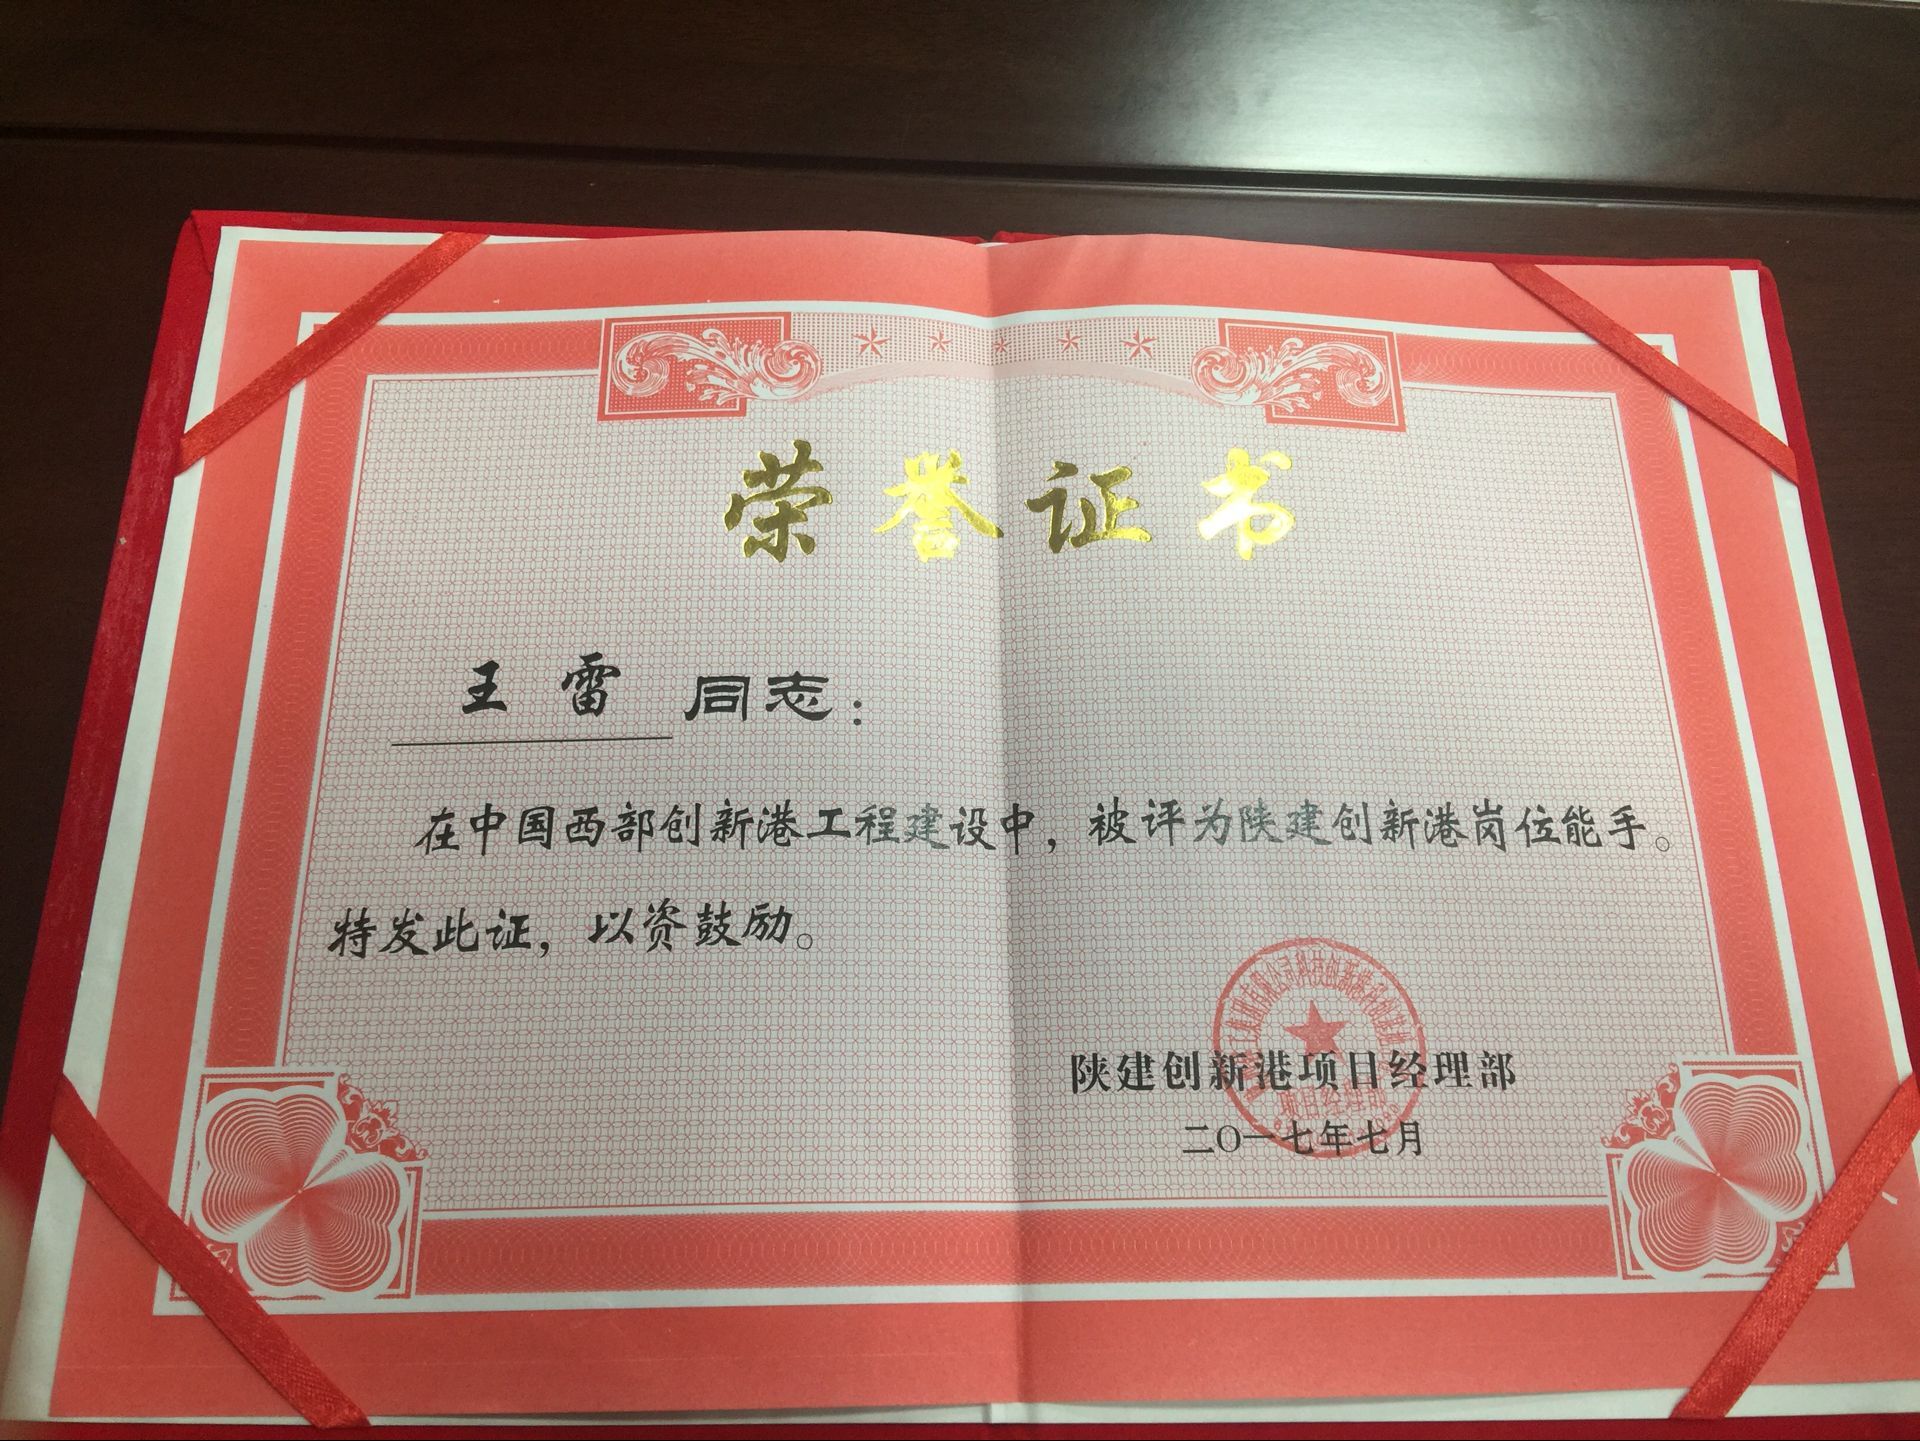 荣誉证书
王雷 同志：
在中国西部创新港工程建设中，被评为陕建创新港岗位能手。
特发此证，以资鼓励。
陕建创新港项目经理部
二〇一七年七月
项目经理部